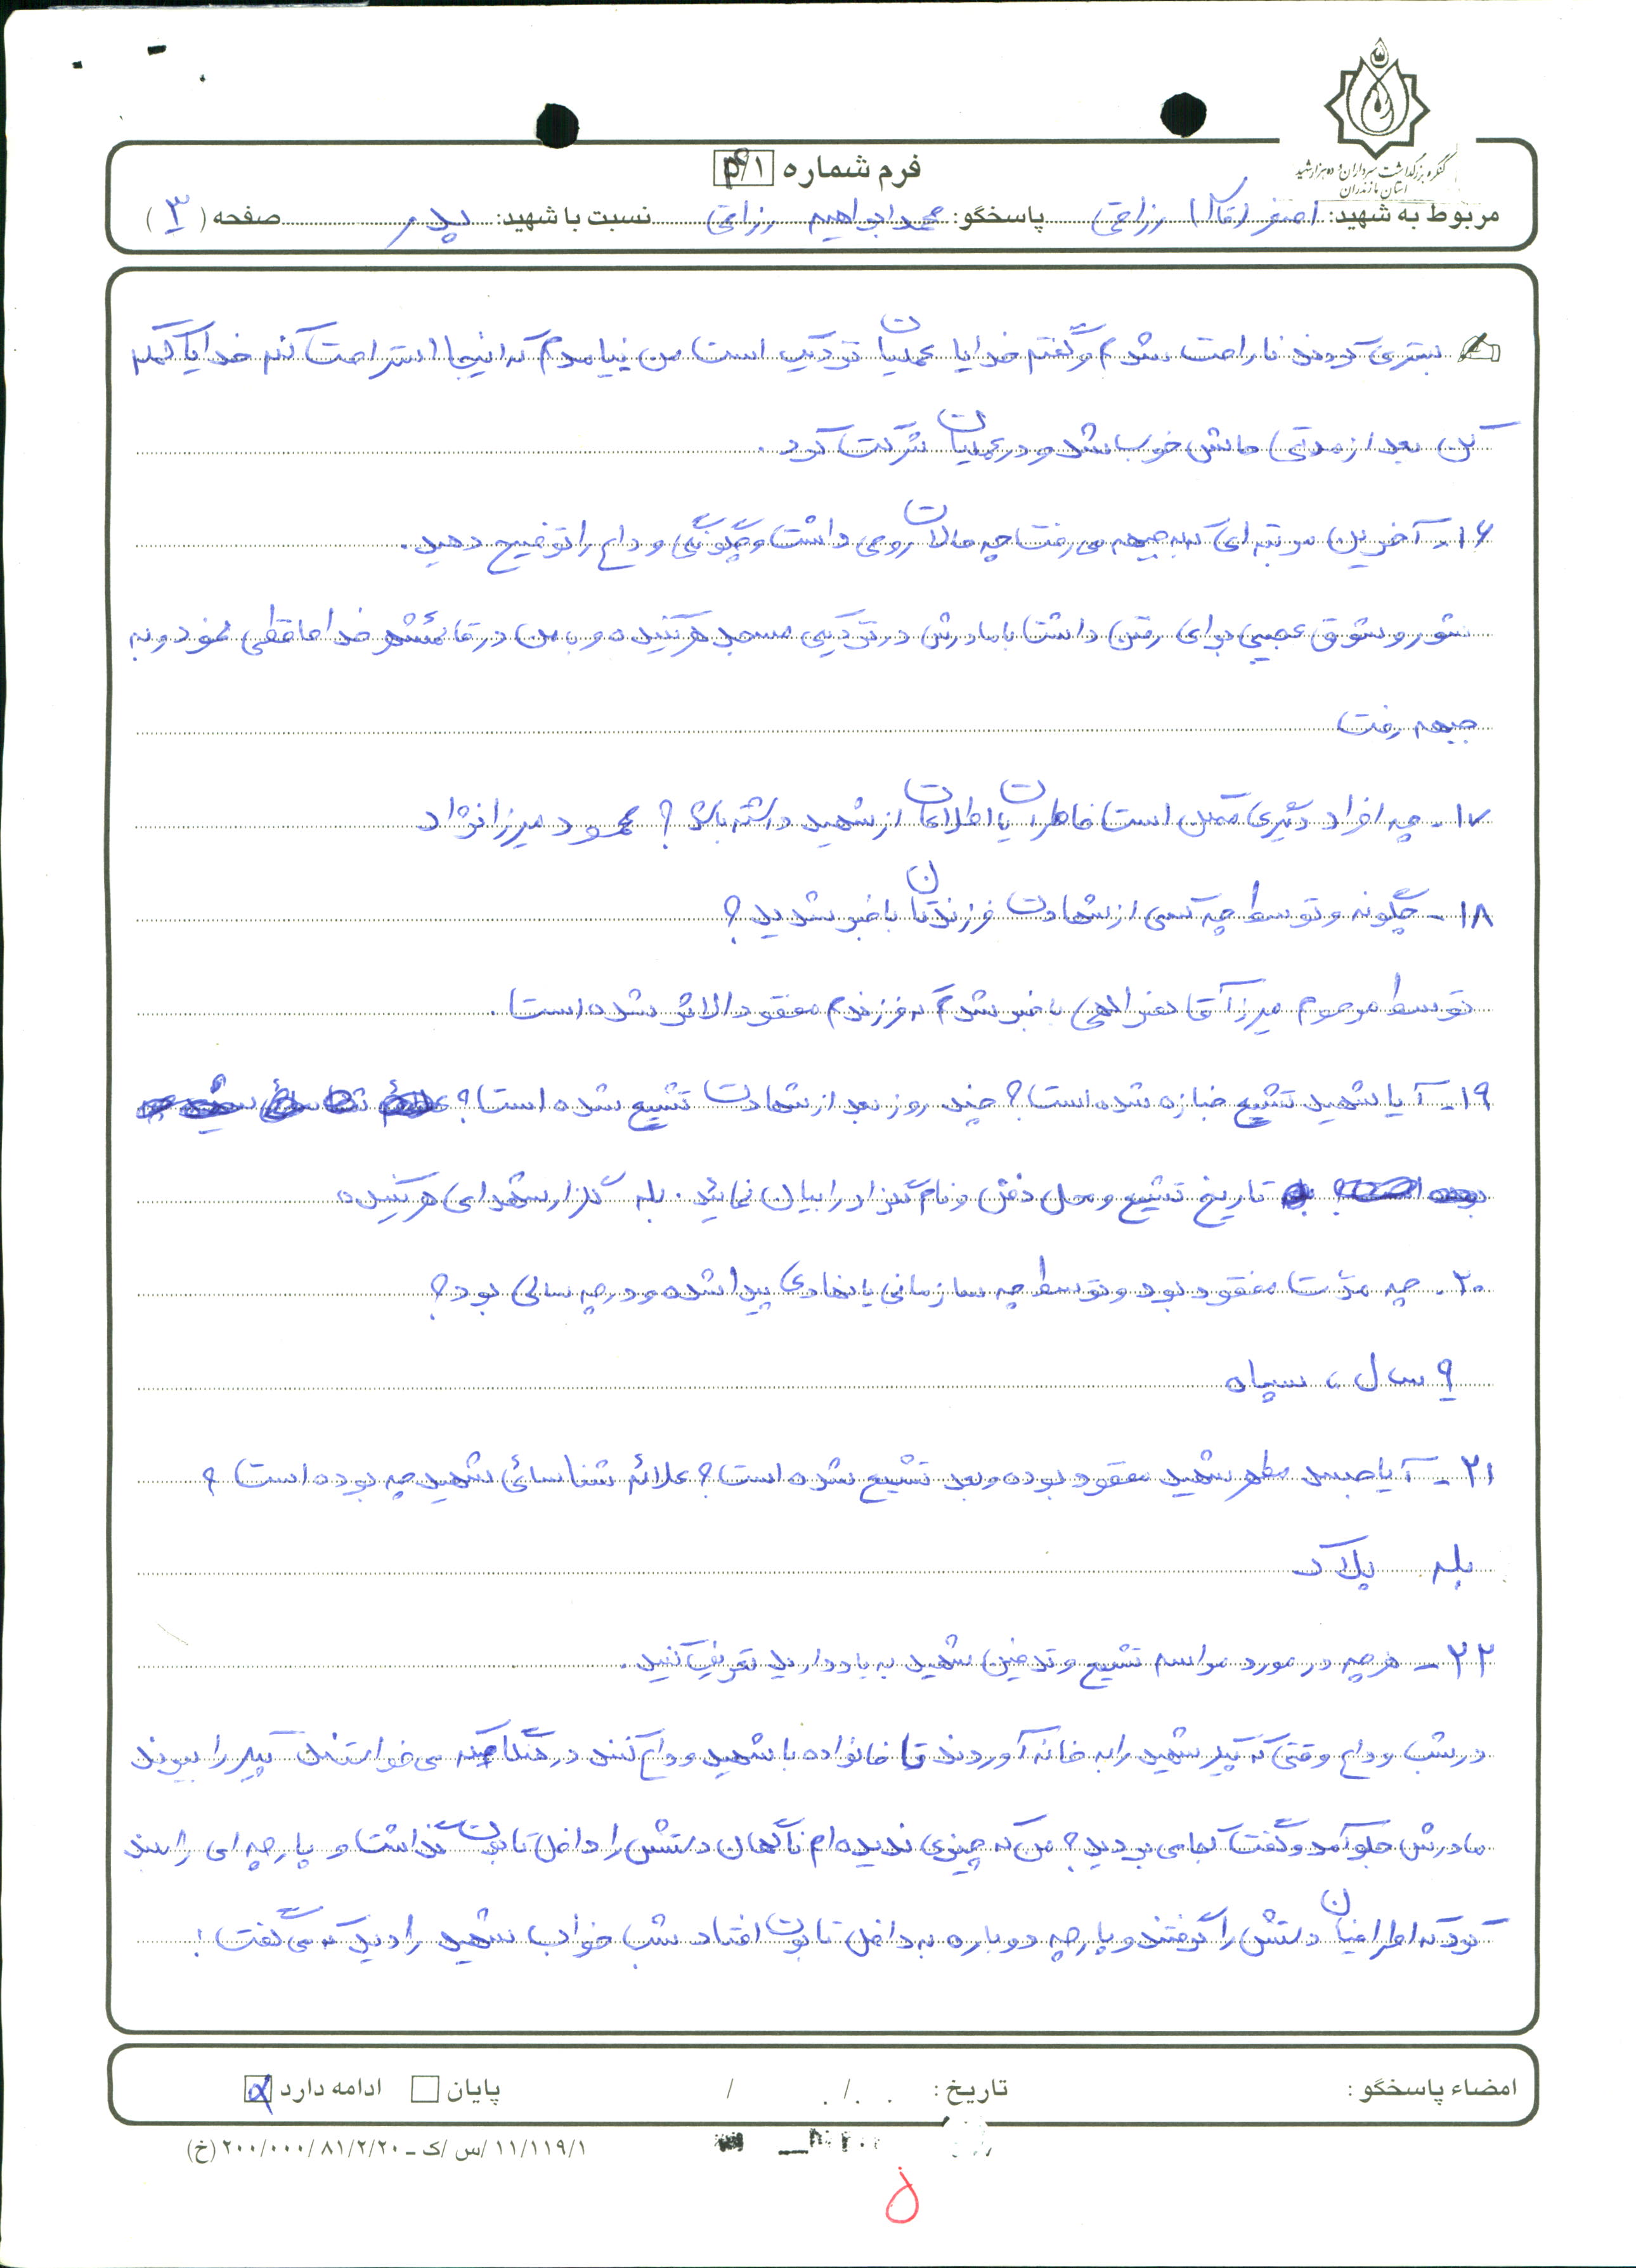 کنگره بزرگداشت سرداران و ده هزار شهید
استان مازندران
فرم شماره
مربوط به شهید: اصغر (آقاگل) رزاقی پاسخگو: محمد ابراهیم رزاقی نسبت با شهید: پدر صفحه (۳)
بستری کردند ناراحت شدم و گفتم خدایا عملیات نزدیک است من نیامدم که اینجا استراحت کنم خدایا کمکم
کن بعد از مدتی حالش خوب شد و در عملیات شرکت کرد.
۱۶- آخرین مرتبه ای که به جبهه می رفت چه حالات روحی داشت و چگونگی وداع را توضیح دهید.
شور و شوق عجیبی برای رفتن داشت با مادرش در نزدیکی مسجد هرتیکنده و با من در قائمشهر خداحافظی نمود و به
جبهه رفت
۱۷- چه افراد دیگری ممکن است خاطرات یا اطلاعات از شهید داشته باشد؟ محمود میرزانژاد
۱۸- چگونه و توسط چه کسی از شهادت فرزندتان باخبر شدید؟
توسط مرحوم میرزا آقا باخبر شدم که فرزندم مفقودالاثر شده است.
۱۹- آیا شهید تشییع جنازه شده است؟ چند روز بعد از شهادت تشییع شده است؟
تاریخ تشییع و محل دفن و نام گلزار را بیان نمائید. بله گلزار شهدای هرتیکنده
۲۰- چه مدت مفقود بود و توسط چه سازمانی یا نهادی پیدا شده و در چه سالی بود؟
۹ سال، سپاه
۲۱- آیا جسد مطهر شهید مفقود بوده و بعد تشییع شده است؟ علائم شناسائی شهید چه بوده است؟
بله پلاک
۲۲- هرچه در مورد مراسم تشییع و تدفین شهید به یاد دارید تعریف کنید.
در شب وداع وقتی که پیکر شهید را به خانه آوردند تا خانواده با شهید وداع کنند در هنگامیکه می خواستند پیکر را ببرند
مادرش جلو آمد و گفت کجا می برید؟ من که چیزی ندیده ام ناگهان دستش را داخل تابوت گذاشت و پارچه ای را بلند
کرد که اطرافیان دستش را گرفتند و پارچه دوباره به داخل تابوت افتاد شب خواب شهید را دید که می گفت:
امضاء پاسخگو: تاریخ: / / پایان ادامه دارد
۱۱/۱۱۹/۱/س/ک - ۲۰۰/۰۰۰/۸۱/۲/۲۰ (خ)
۵